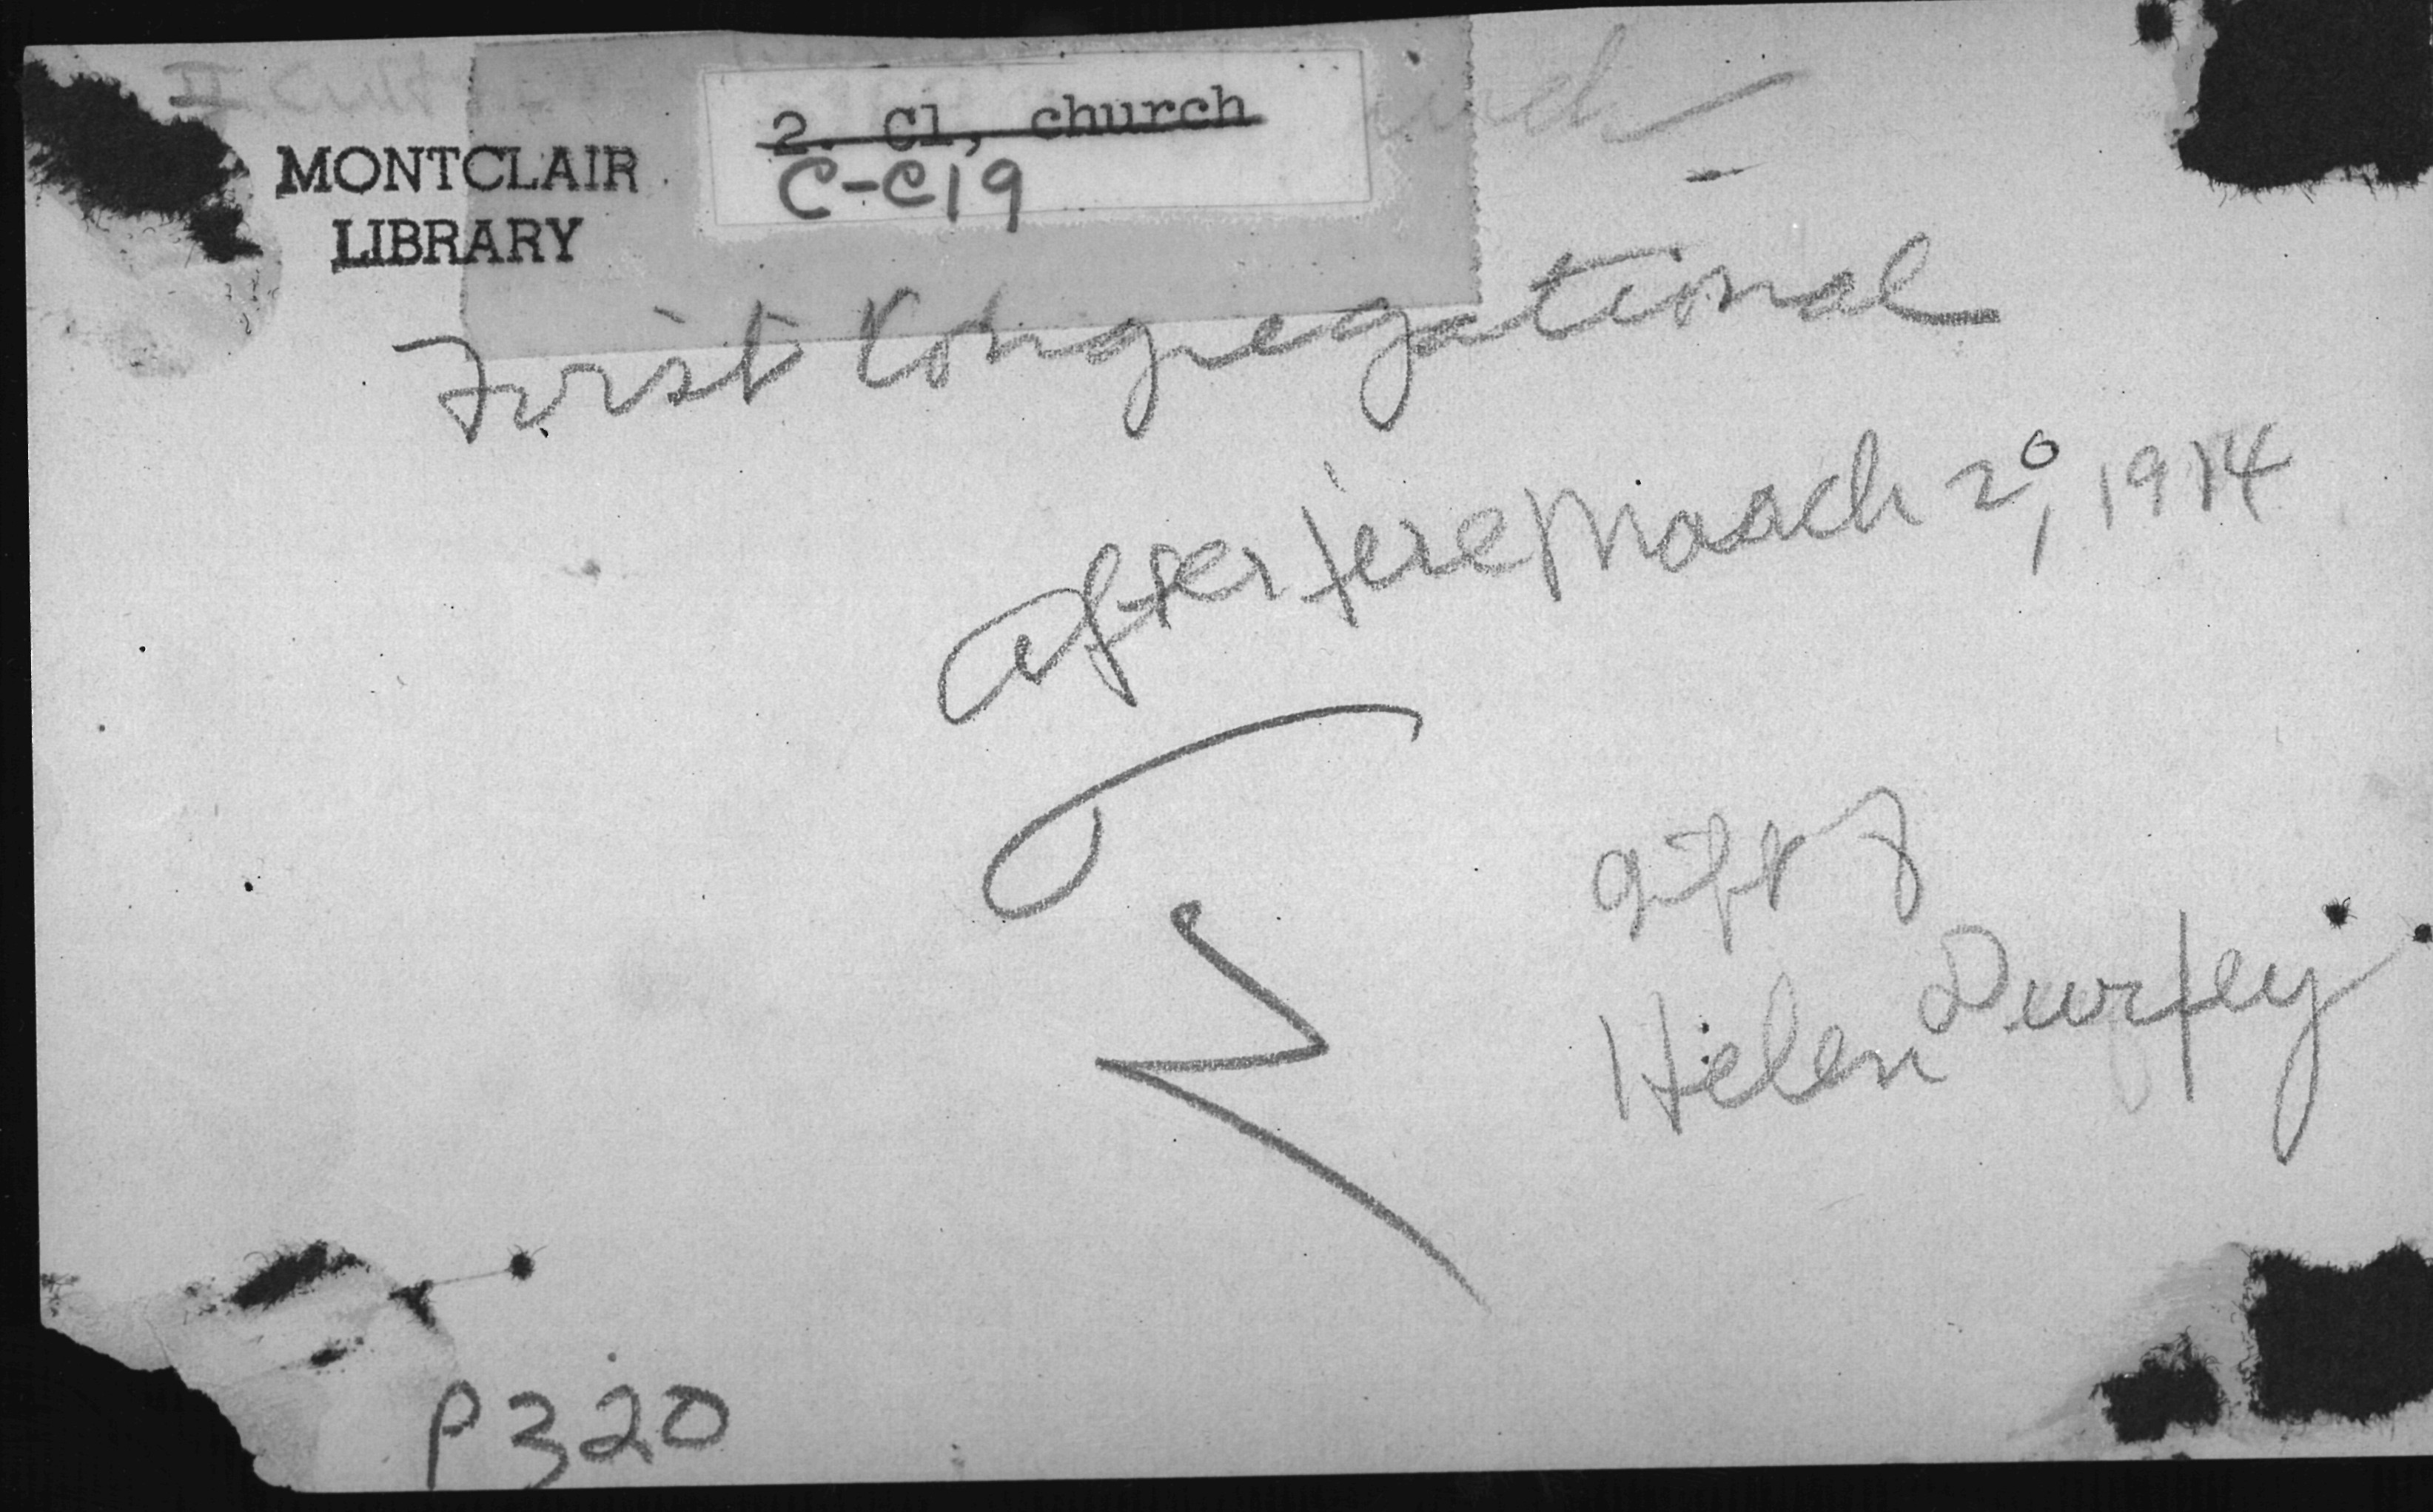 II Cult
MONTCLAIR
LIBRARY
2. Cl, church
C-C19
First Congregational
after fire March 20, 1914
gift of
Helen Durfey
P320